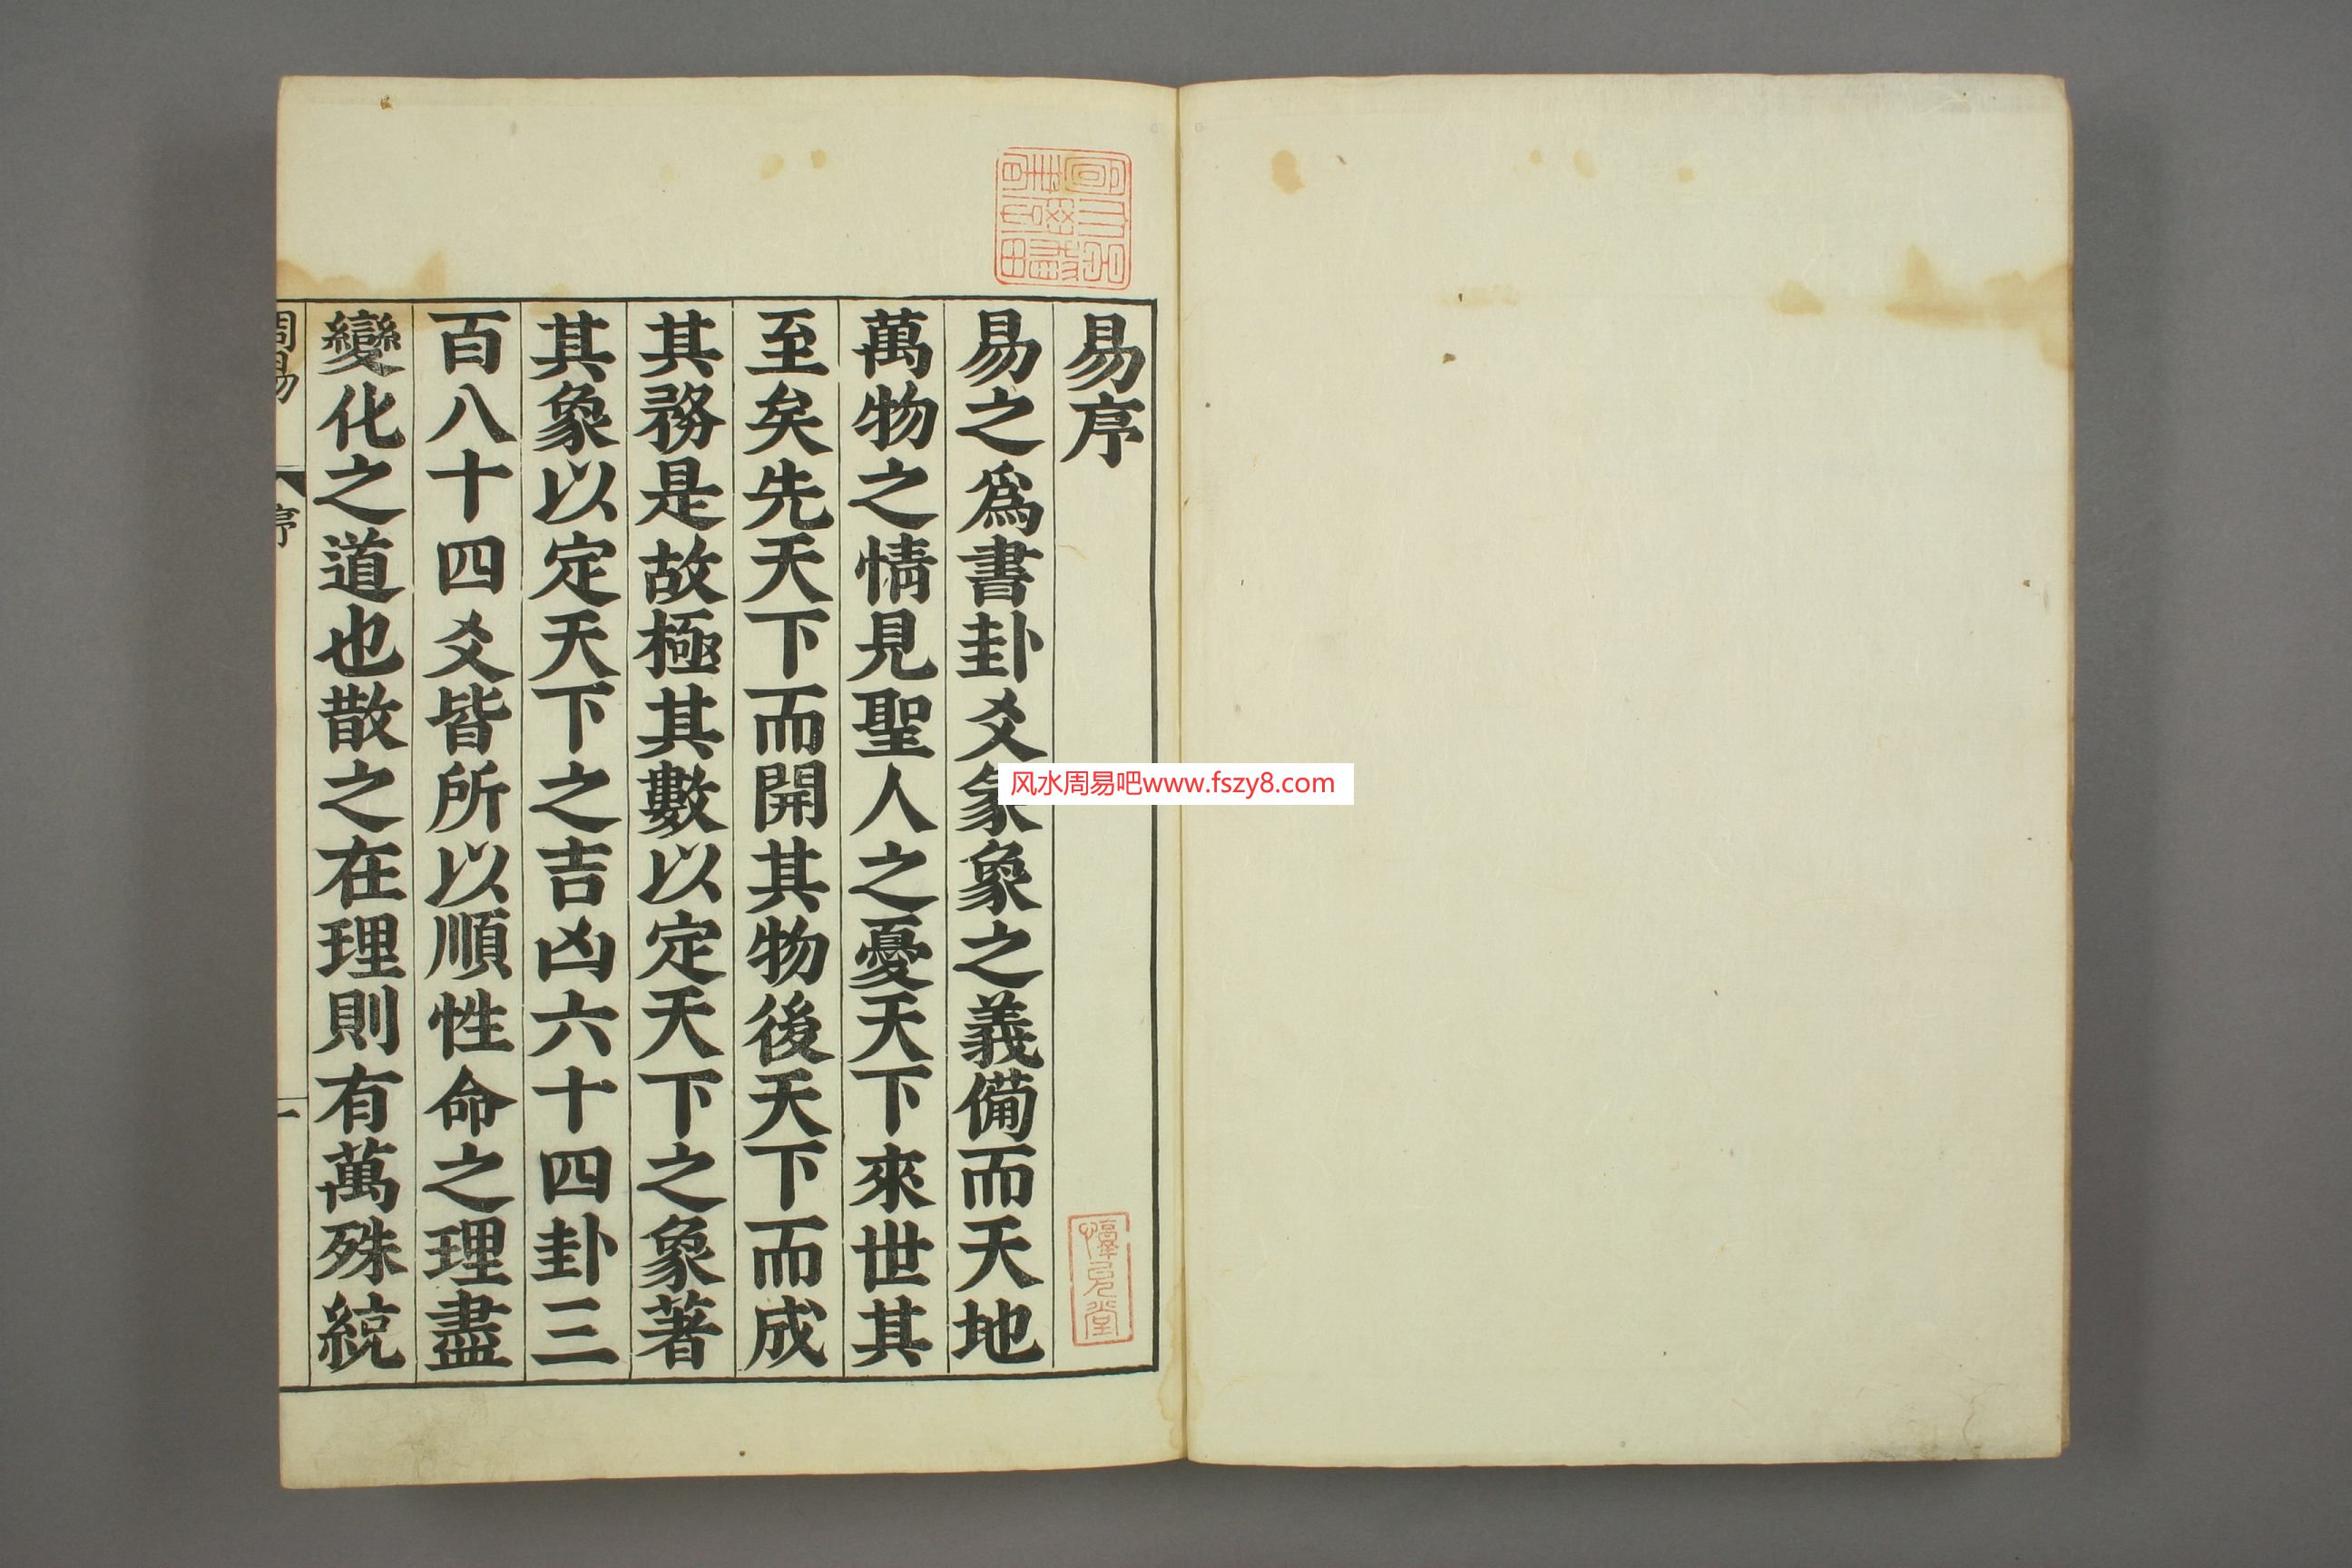 易序
易之爲書卦爻彖象之義備而天地
萬物之情見聖人之憂天下來世其
至矣先天下而開其物後天下而成
其務是故極其數以定天下之象著
其象以定天下之吉凶六十四卦三
百八十四爻皆所以順性命之理盡
變化之道也散之在理則有萬殊統
周易
序
一
风水周易吧www.fszy8.com